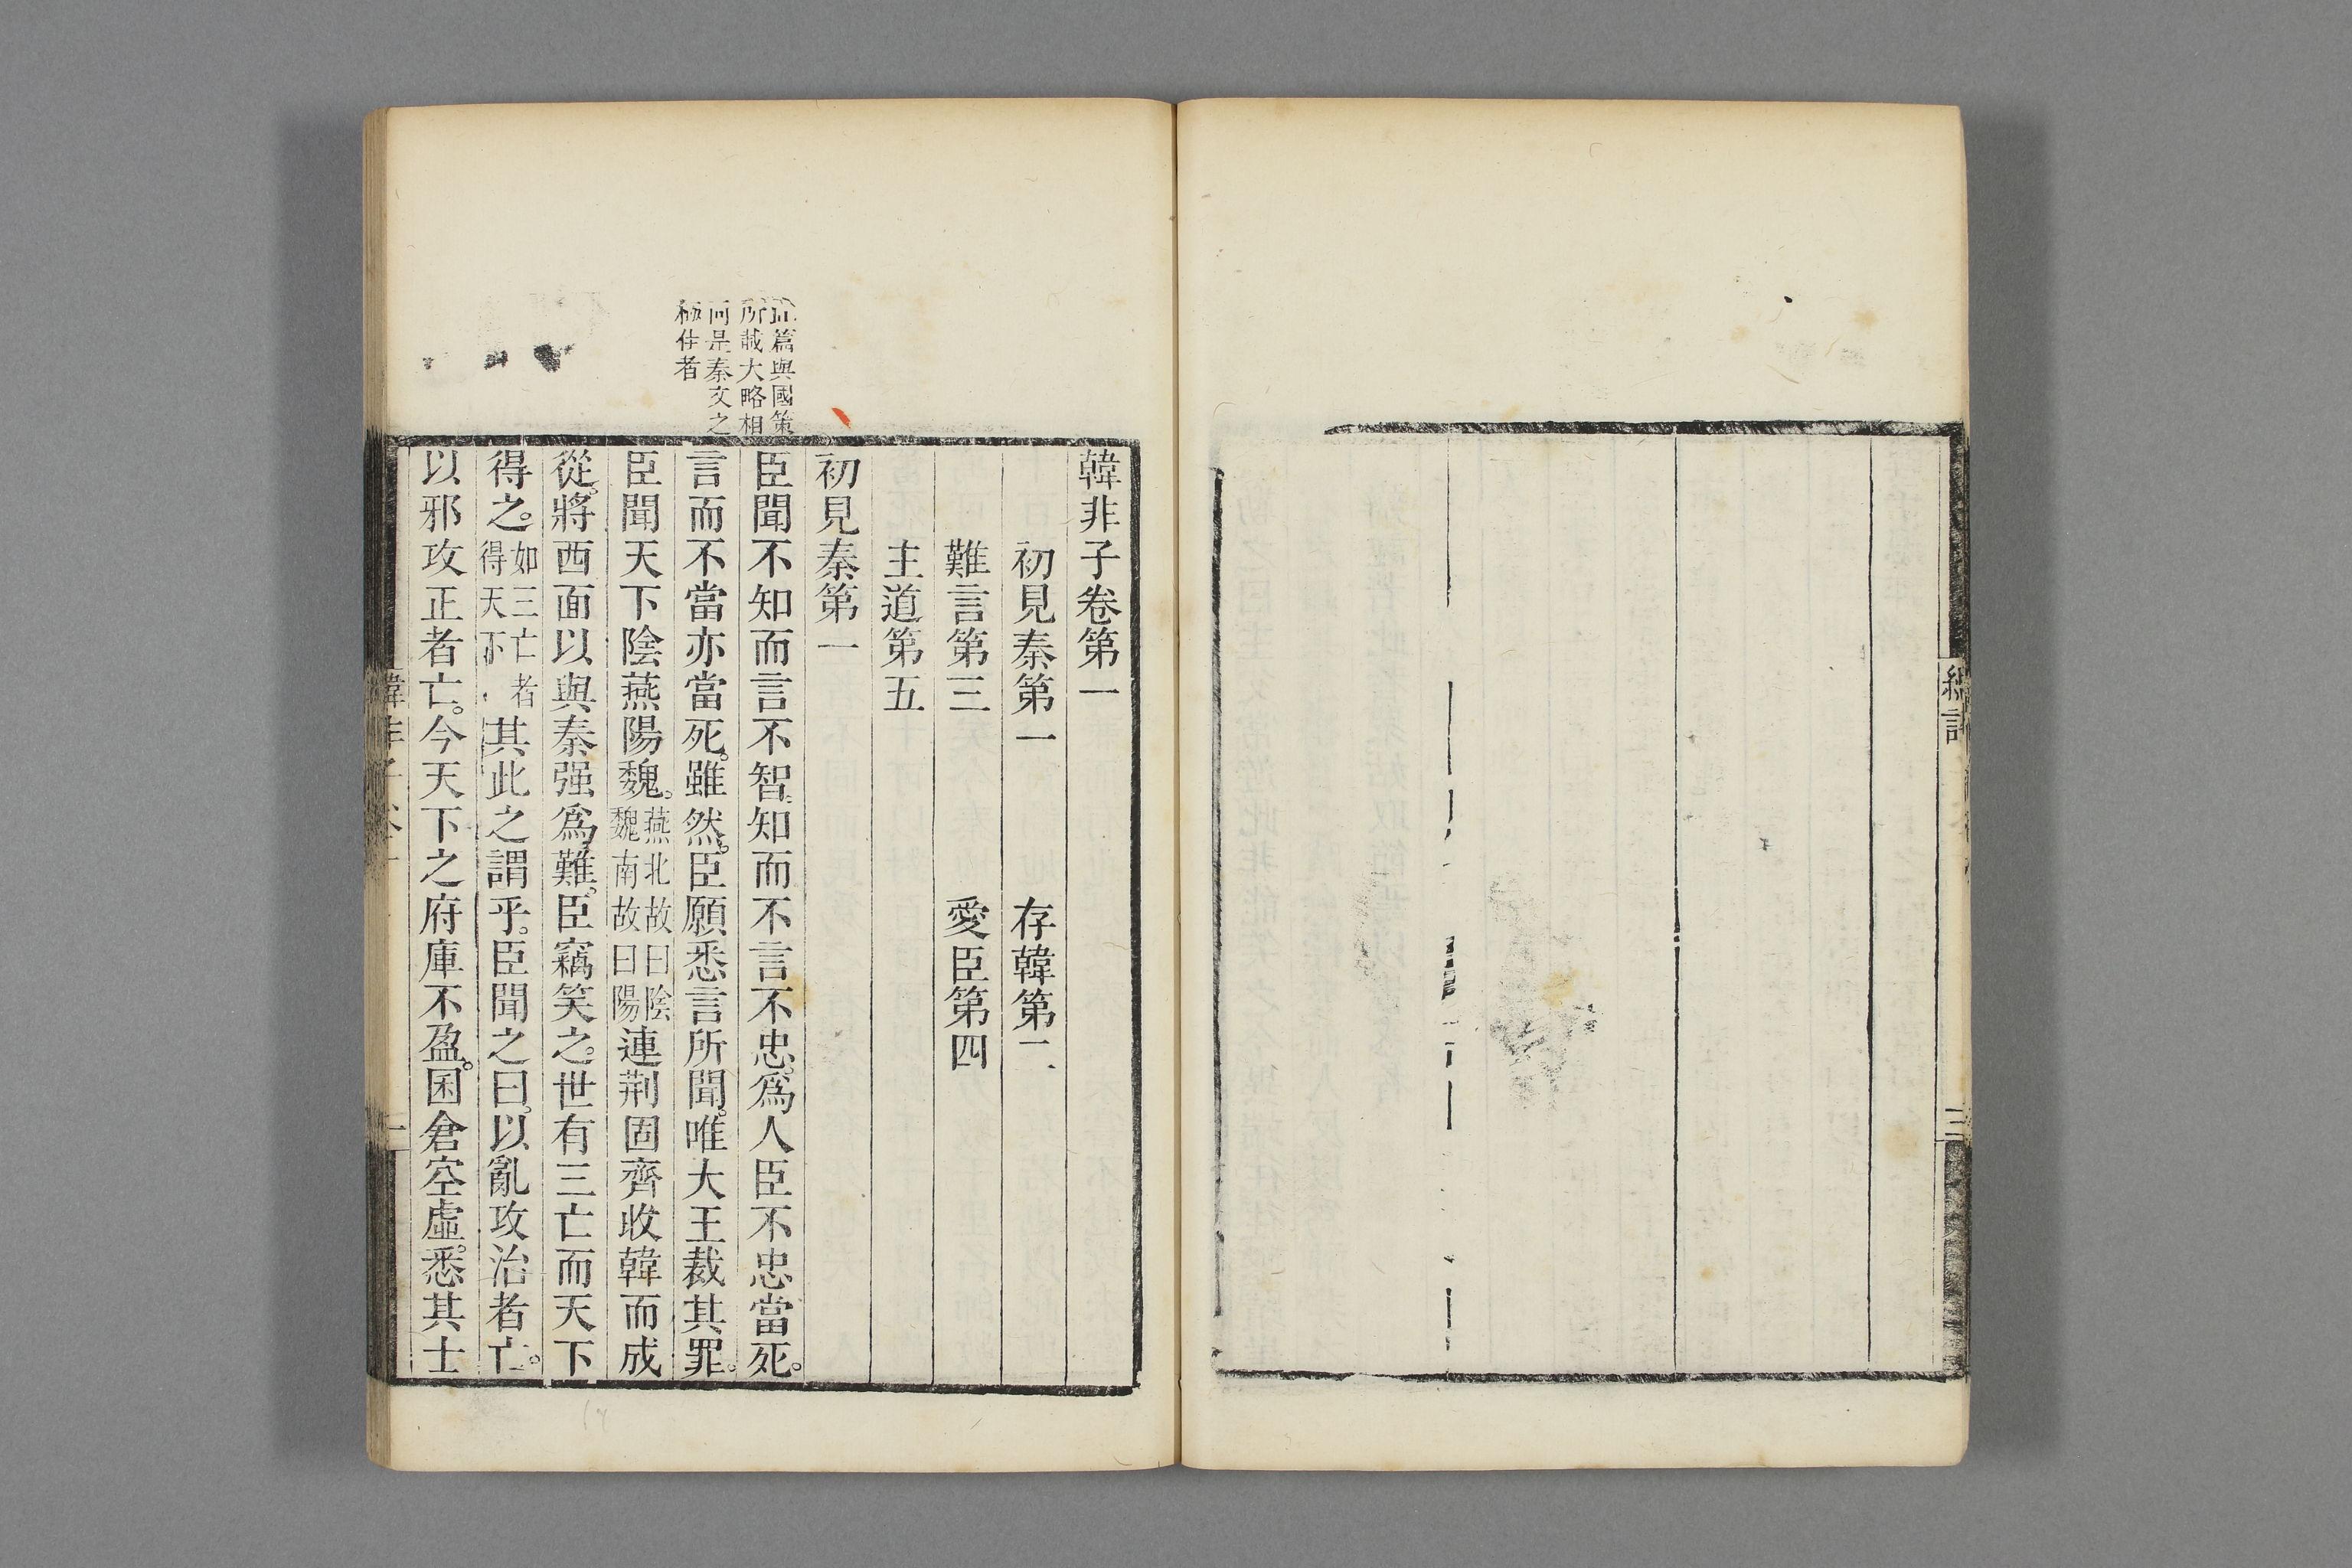 三
此篇與國策
所載大略相
同是秦文之
極佳者
韓非子卷第一
初見秦第一 存韓第二
難言第三 愛臣第四
主道第五
初見秦第一
臣聞不知而言不智。知而不言不忠。爲人臣不忠當死。
言而不當亦當死。雖然。臣願悉言所聞。唯大王裁其罪。
臣聞天下陰燕陽魏。燕北故曰陰魏南故曰陽連荆固齊收韓而成
從。將西面以與秦强爲難。臣竊笑之。世有三亡而天下
得之。如三亡者得天下其此之謂乎。臣聞之曰。以亂攻治者亡。
以邪攻正者亡。今天下之府庫不盈。囷倉空虛。悉其士
韓非子卷一
一